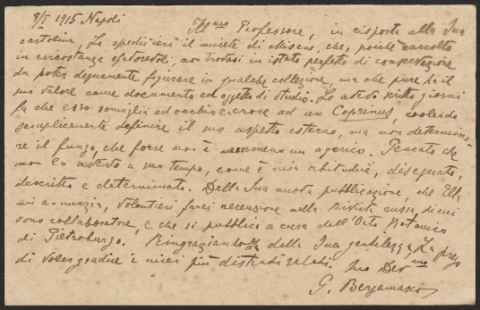 8/I 1915 Napoli Ill.mo Professore, in risposta alla Sua
cartolina Le spedii ieri il micete di Miseno, che, poichè raccolto
in circostanze sfavorevoli, non trovasi in istato perfetto di conservazione
da poter degnamente figurare in qualche collezione, ma che pure ha il
suo valore come documento ed oggetto di studio. Le avevo scritto giorni
fa che esso somiglia ad occhio e croce ad un Coprinus, volendo
semplicemente definire il suo aspetto esterno, ma non determina-
re il fungo, che forse non è nemmeno un agarico. Peccato che
non lo avesse a suo tempo, come è mia abitudine, disegnato,
descritto e determinato. Della Sua nuova pubblicazione, che Ella
mi annunzia, volentieri farei recensione nella Rivista russa, di cui
sono collaboratore, e che si pubblica a cura dell'Orto Botanico
di Pietroburgo. Ringraziandola della Sua gentilezza, La prego
di voler gradire i miei più distinti saluti. Suo Dev.mo
G. Bergamasco